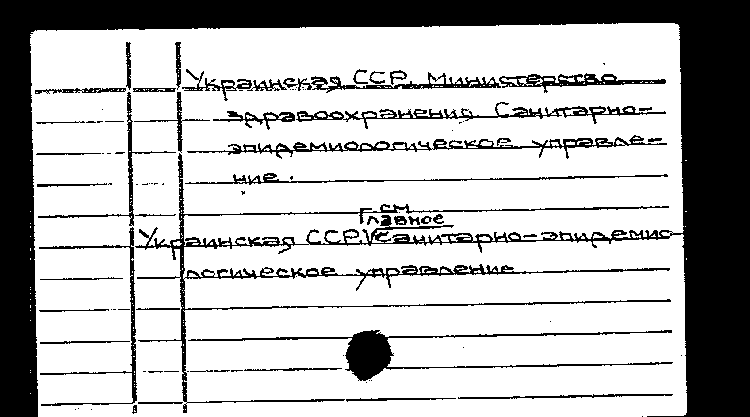 Украинская ССР. Министерство
здравоохранения. Санитарно-
эпидемиологическое управле-
ние.
см
Главное
Украинская ССР. Санитарно-эпидемио-
логическое управление.